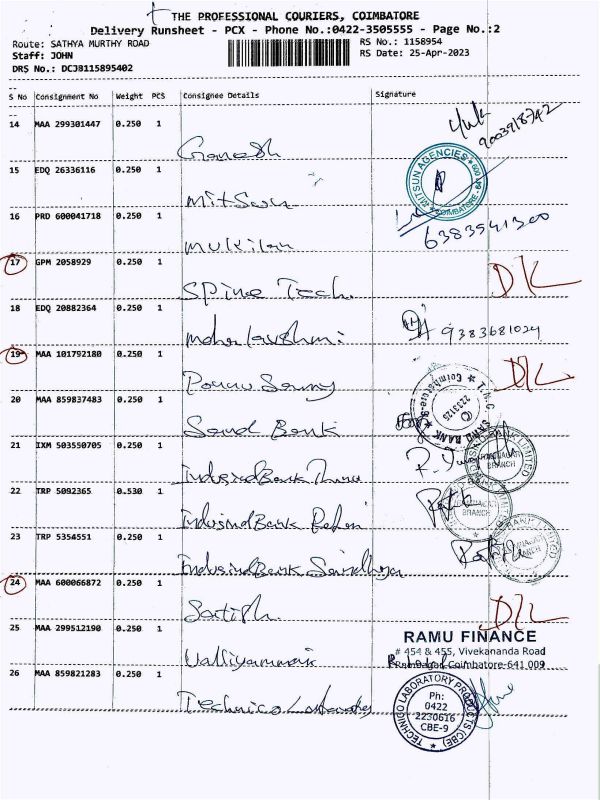 THE PROFESSIONAL COURIERS, COIMBATORE
Delivery Runsheet - PCX - Phone No.:0422-3505555 - Page No.:2
Route: SATHYA MURTHY ROAD RS No.: 1158954
Staff: JOHN RS Date: 25-Apr-2023
DRS No.: DCJB115895402
S No Consignment No Weight PCS Consignee Details Signature
14 MAA 299301447 0.250 1
Ganesh 9003918742
15 EDQ 26336116 0.250 1
MITSUN AGENCIES COIMBATORE
Mitsun
16 PRD 600041718 0.250 1
Mukilan 6383541300
17 GPM 2058929 0.250 1
Spine Tech. DL
18 EDQ 20882364 0.250 1
Maha lakshmi 9383681024
19 MAA 101792180 0.250 1
Ponnu Samy DL
20 MAA 859837483 0.250 1
Sand Bank
21 IXM 503550705 0.250 1
IndusindBank
BRANCH
22 TRP 5092365 0.530 1
IndusindBank
BRANCH
23 TRP 5354551 0.250 1
IndusindBank Sandhya
BRANCH
24 MAA 600066872 0.250 1
Satish DL
25 MAA 299512190 0.250 1
RAMU FINANCE
# 454 & 455, Vivekananda Road
Ramnagar, Coimbatore-641 009
Valliyammai
26 MAA 859821283 0.250 1
Technico Laboratory
TECHNICO LABORATORY PRODUCTS (CBE)
Ph:
0422
2230616
CBE-9